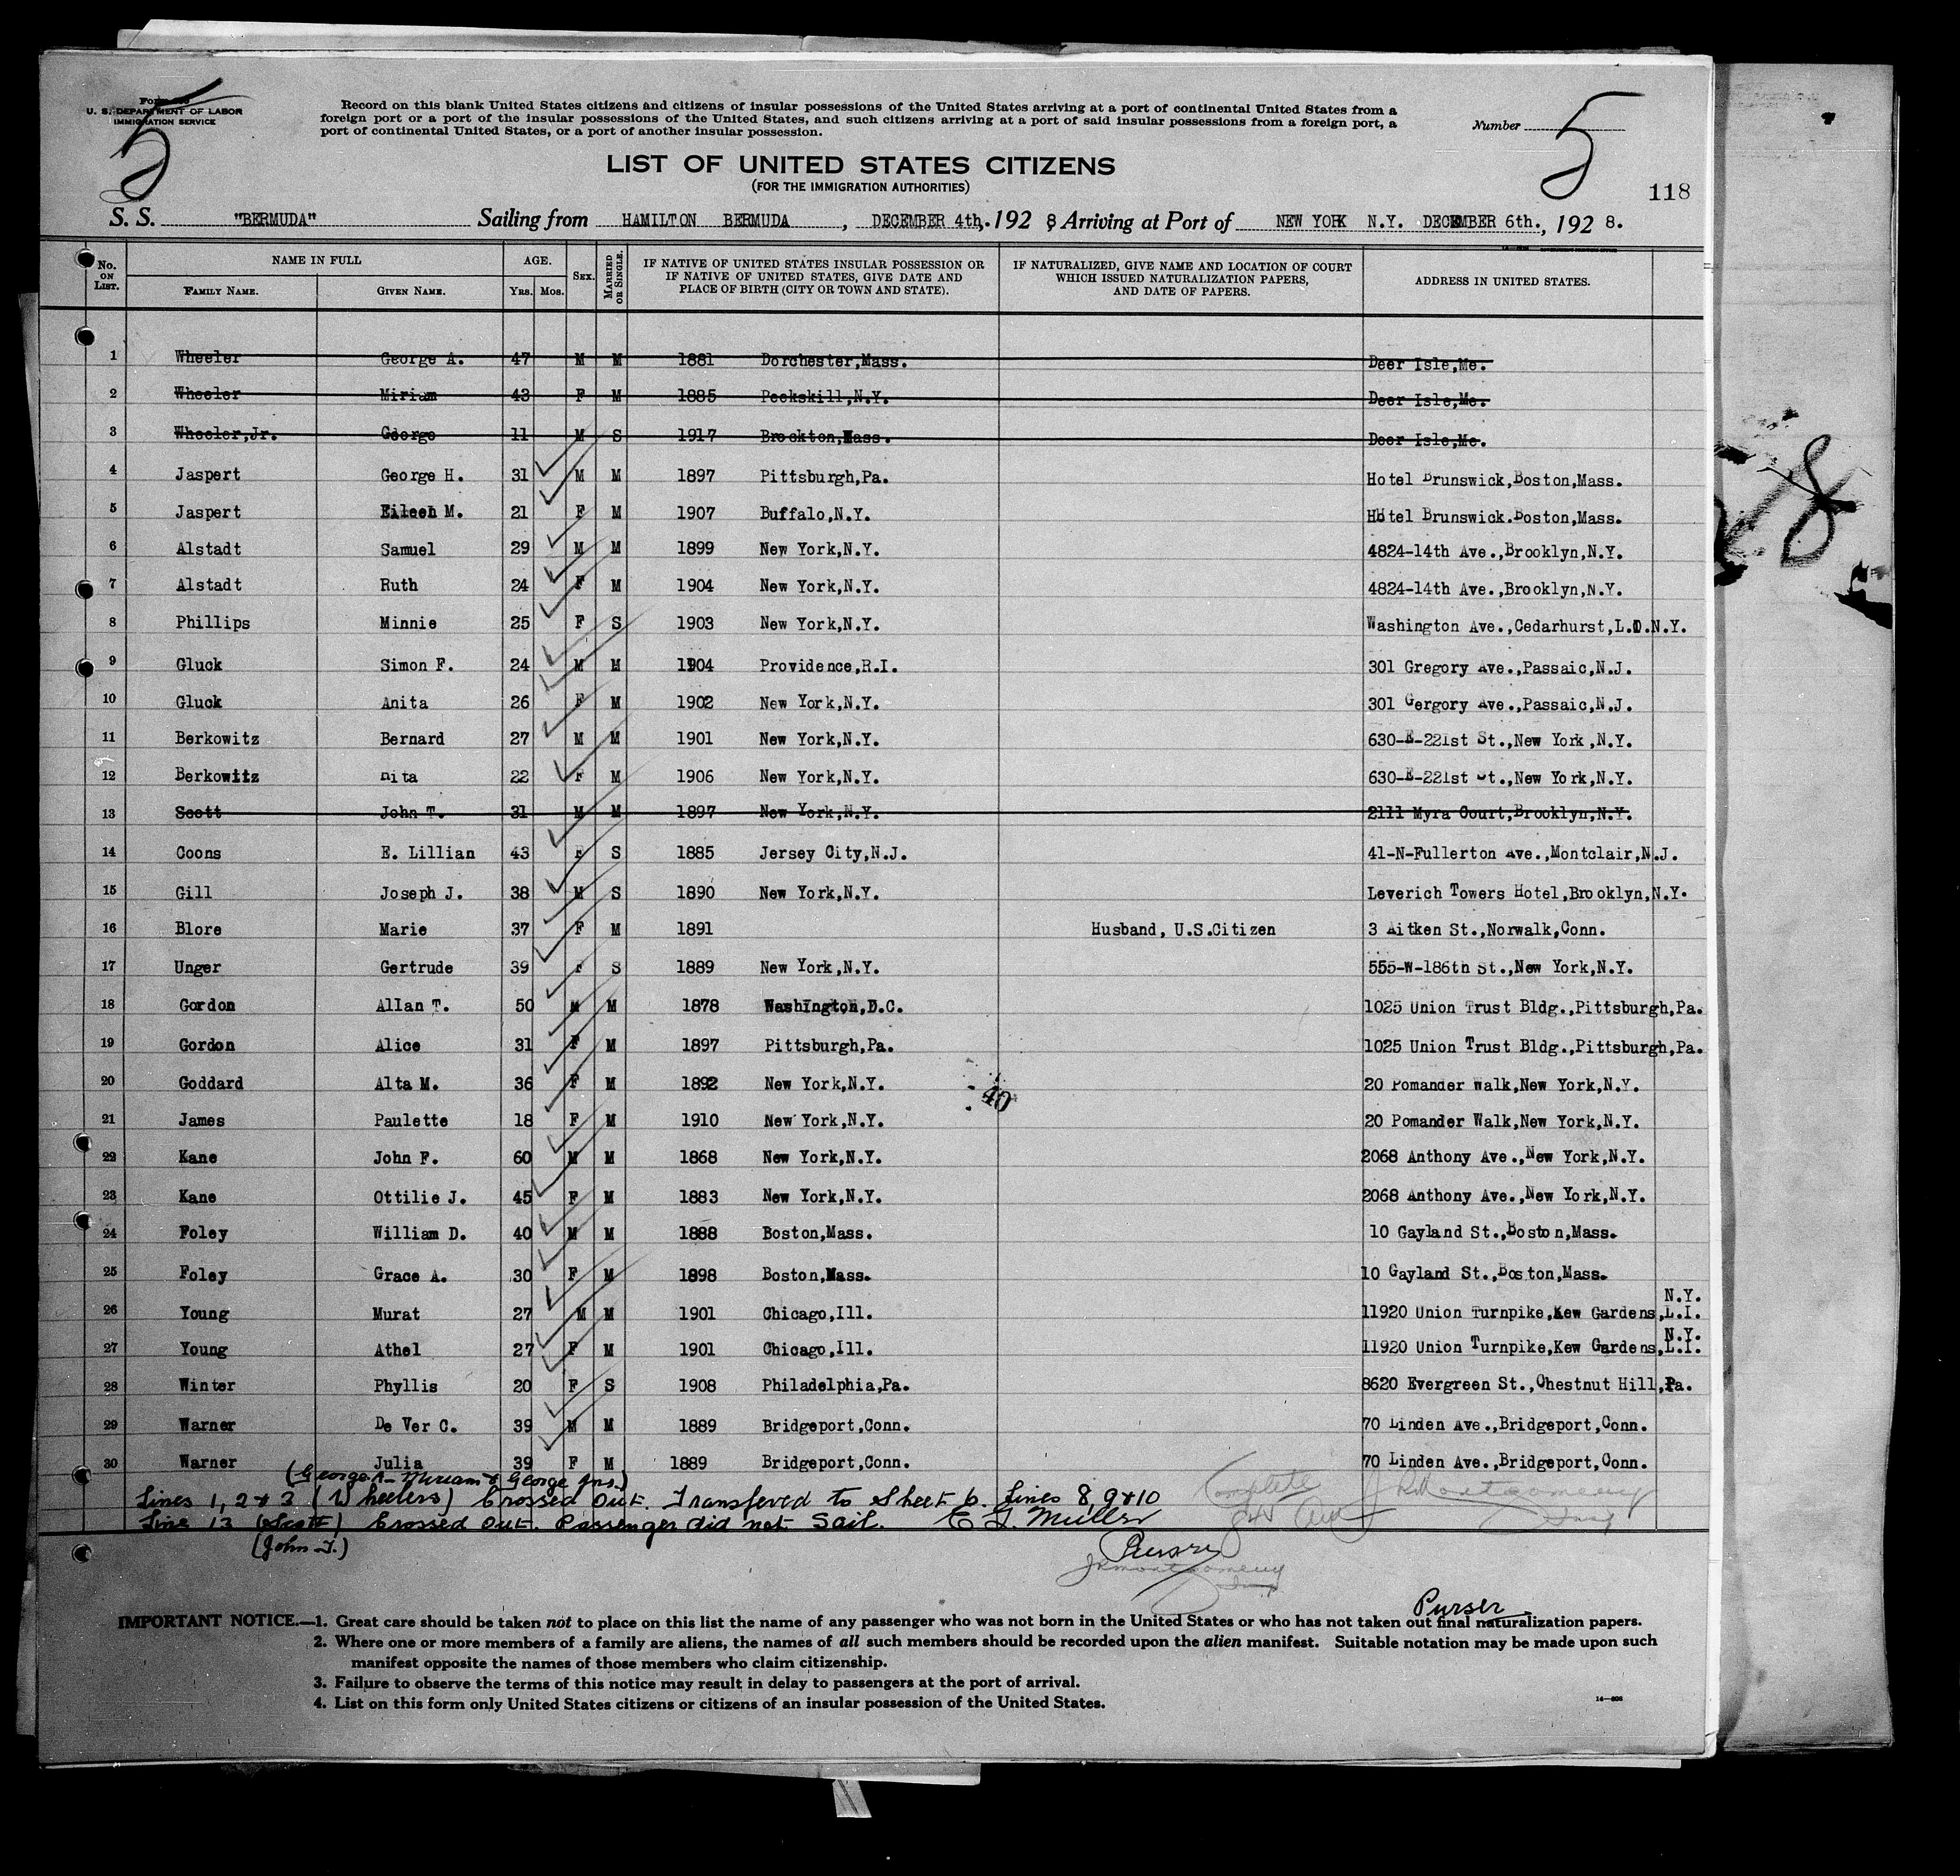 U. S. DEPARTMENT OF LABOR
IMMIGRATION SERVICE
5
Record on this blank United States citizens and citizens of insular possessions of the United States arriving at a port of continental United States from a
foreign port or a port of the insular possessions of the United States, and such citizens arriving at a port of said insular possessions from a foreign port, a
port of continental United States, or a port of another insular possession.
Number 5
LIST OF UNITED STATES CITIZENS
(FOR THE IMMIGRATION AUTHORITIES)
118
S. S. "BERMUDA" Sailing from HAMILTON BERMUDA, DECEMBER 4th,. 192 8, Arriving at Port of NEW YORK N.Y. DECEMBER 6th., 192 8.
No. ON LIST. NAME IN FULL FAMILY NAME. GIVEN NAME. AGE. YRS. MOS. SEX. MARRIED OR SINGLE. IF NATIVE OF UNITED STATES INSULAR POSSESSION OR IF NATIVE OF UNITED STATES, GIVE DATE AND PLACE OF BIRTH (CITY OR TOWN AND STATE). IF NATURALIZED, GIVE NAME AND LOCATION OF COURT WHICH ISSUED NATURALIZATION PAPERS, AND DATE OF PAPERS. ADDRESS IN UNITED STATES.
1 Wheeler George A. 47 M M 1881 Dorchester,Mass. Deer Isle,Me.
2 Wheeler Miriam 43 F M 1885 Peekskill,N.Y. Deer Isle,Me.
3 Wheeler,Jr. George 11 M S 1917 Brockton,Mass. Deer Isle,Me.
4 Jaspert George H. 31 M M 1897 Pittsburgh,Pa. Hotel Brunswick,Boston,Mass.
5 Jaspert Eileen M. 21 F M 1907 Buffalo,N.Y. Hotel Brunswick.Boston,Mass.
6 Alstadt Samuel 29 M M 1899 New York,N.Y. 4824-14th Ave.,Brooklyn,N.Y.
7 Alstadt Ruth 24 F M 1904 New York,N.Y. 4824-14th Ave.,Brooklyn,N.Y.
8 Phillips Minnie 25 F S 1903 New York,N.Y. Washington Ave.,Cedarhurst,L.I.N.Y.
9 Gluck Simon F. 24 M M 1904 Providence,R.I. 301 Gregory Ave.,Passaic,N.J.
10 Gluck Anita 26 F M 1902 New York,N.Y. 301 Gergory Ave.,Passaic,N.J.
11 Berkowitz Bernard 27 M M 1901 New York,N.Y. 630-E-221st St.,New York,N.Y.
12 Berkowitz 22 F M 1906 New York,N.Y. 630-E-221st St.,New York,N.Y.
13 Scott John T. 31 M M 1897 New York,N.Y. 2111 Myra Court,Brooklyn,N.Y.
14 Coons E. Lillian 43 F S 1885 Jersey City,N.J. 41-N-Fullerton Ave.,Montclair,N.J.
15 Gill Joseph J. 38 M S 1890 New York,N.Y. Leverich Towers Hotel,Brooklyn,N.Y.
16 Blore Marie 37 F M 1891 Husband, U.S.Citizen 3 Aitken St.,Norwalk,Conn.
17 Unger Gertrude 39 F S 1889 New York,N.Y. 555-W-186th St.,New York,N.Y.
18 Gordon Allan T. 50 M M 1878 Washington,D.C. 1025 Union Trust Bldg.,Pittsburgh,Pa.
19 Gordon Alice 31 F M 1897 Pittsburgh,Pa. 1025 Union Trust Bldg.,Pittsburgh,Pa.
20 Goddard Alta M. 36 F M 1892 New York,N.Y. 20 Pomander Walk,New York,N.Y.
40
21 James Paulette 18 F M 1910 New York,N.Y. 20 Pomander Walk,New York,N.Y.
22 Kane John F. 60 M M 1868 New York,N.Y. 2068 Anthony Ave.,New York,N.Y.
23 Kane Ottilie J. 45 F M 1883 New York,N.Y. 2068 Anthony Ave.,New York,N.Y.
24 Foley William D. 40 M M 1888 Boston,Mass. 10 Gayland St.,Boston,Mass.
25 Foley Grace A. 30 F M 1898 Boston,Mass. 10 Gayland St.,Boston,Mass.
26 Young Murat 27 M M 1901 Chicago,Ill. 11920 Union Turnpike,Kew Gardens,L.I. N.Y.
27 Young Athel 27 F M 1901 Chicago,Ill. 11920 Union Turnpike,Kew Gardens,L.I. N.Y.
28 Winter Phyllis 20 F S 1908 Philadelphia,Pa. 8620 Evergreen St.,Chestnut Hill,Pa.
29 Warner De Ver C. 39 M M 1889 Bridgeport,Conn. 70 Linden Ave.,Bridgeport,Conn.
30 Warner Julia 39 F M 1889 Bridgeport,Conn. 70 Linden Ave.,Bridgeport,Conn.
(George A - Miriam & George Jnr.)
Lines 1, 2 & 3 (Wheelers) Crossed Out. Transfered to Sheet 6. Lines 8, 9 & 10 Complete JRMontgomery
Line 13 (Scott) Crossed Out. Passenger did not Sail. E J. Muller
(John T.) Purser
JRMontgomery
Purser
IMPORTANT NOTICE.—1. Great care should be taken not to place on this list the name of any passenger who was not born in the United States or who has not taken out final naturalization papers.
2. Where one or more members of a family are aliens, the names of all such members should be recorded upon the alien manifest. Suitable notation may be made upon such
manifest opposite the names of those members who claim citizenship.
3. Failure to observe the terms of this notice may result in delay to passengers at the port of arrival.
4. List on this form only United States citizens or citizens of an insular possession of the United States.